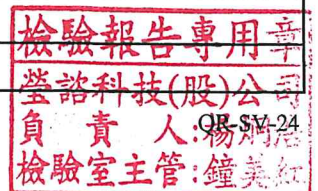 檢驗報告專用章
瑩諮科技(股)公司
負責人:楊
QR-SV-24
檢驗室主管:鐘美紅